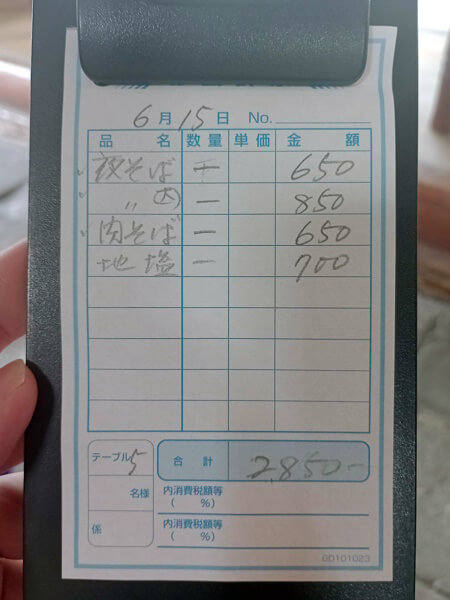 6月15日 No.
品名 数量 単価 金額
夜そば 一 650
〃 大 一 850
肉そば 一 650
地塩 一 700
テーブル 5 合計 2,850-
名様 内消費税額等
( %)
係 内消費税額等
( %)
GD101023